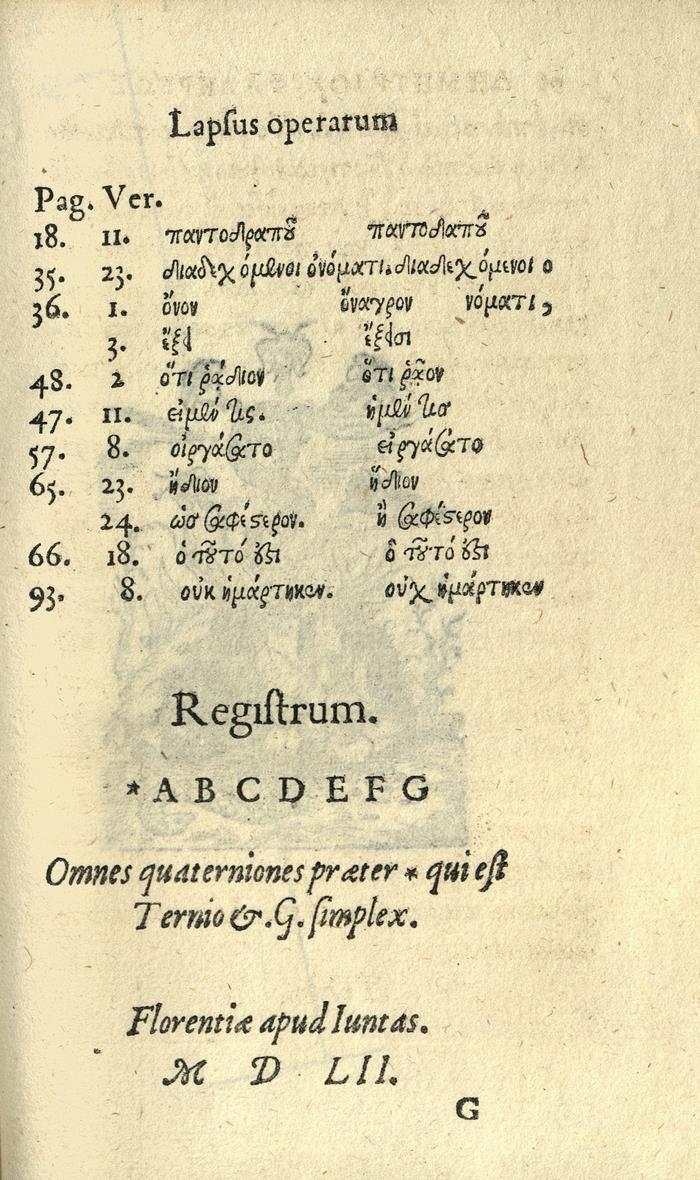 Lapſus operarum
Pag. Ver.
18. 11. παντοδραποῦ παντοδαποῦ
35. 23. διαδεχόμενοι ὀνόματι. διαδεχόμενοι ο
36. 1. ὄνον ὄναγρον νόματι,
3. ἕξει ἕξεισι
48. 2 ὅτι ῥᾴδιον ὅτι ῥᾷον
47. 11. εἰμέν τις. ἡμέν τισ
57. 8. οἰργάσατο εἰργάσατο
65. 23. ἤδιον ἥδιον
24. ὡσ σαφέστερον. ἢ σαφέστερον
66. 18. ὁ τουτό ἐστι ὃ τουτό ἐστι
93. 8. οὐκ ἡμάρτηκεν. οὐχ ἡμάρτηκεν
Regiſtrum.
* A B C D E F G
Omnes quaterniones præter * qui eſt
Ternio &. G. ſimplex.
Florentiæ apud Iuntas.
M D LII.
G